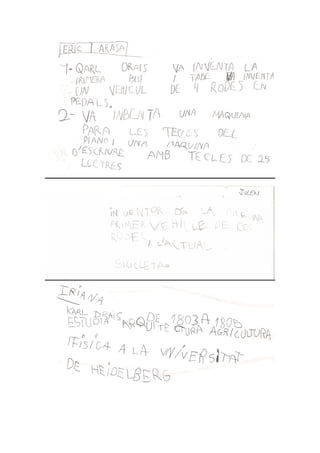 ERIC I ARASA
1- QARL DRAIS VA INVENTA LA
PRIMERA BICI I TABE VA INVENTA
UN VEHICUL DE 4 RODES EN
PEDALS.
2- VA INBENTA UNA MAQUINA
PARA LES TECLES DEL
PIANO I UNA MAQUINA
D'ESCRIURE AMB TECLES DE 25
LLETRES
JULEN
INVENTOR DE LA
PRIMER VEHICLE DE DOS
RODES, L'ACTUAL
BICICLETA
IRIANA
KARL DRAIS DE 1803 A 1805
ESTUDIA ARQUITECTURA AGRICULTURA
I FÍSICA A LA UNIVERSITAT
DE HEIDELBERG